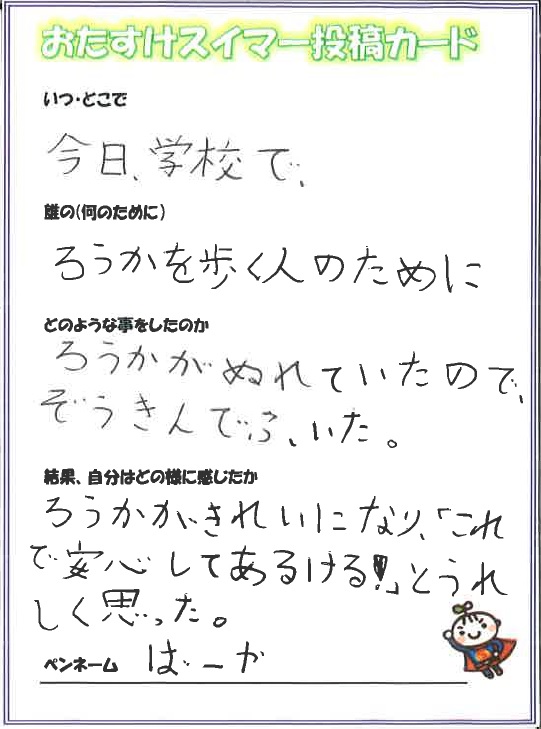 おたすけスイマー投稿カード
いつ・どこで
今日、学校で、
誰の(何のために)
ろうかを歩く人のために
どのような事をしたのか
ろうかがぬれていたので、
ぞうきんでふいた。
結果、自分はどの様に感じたか
ろうかがきれいになり、「これ
で安心してあるける!」とうれ
しく思った。
ペンネーム ばーか